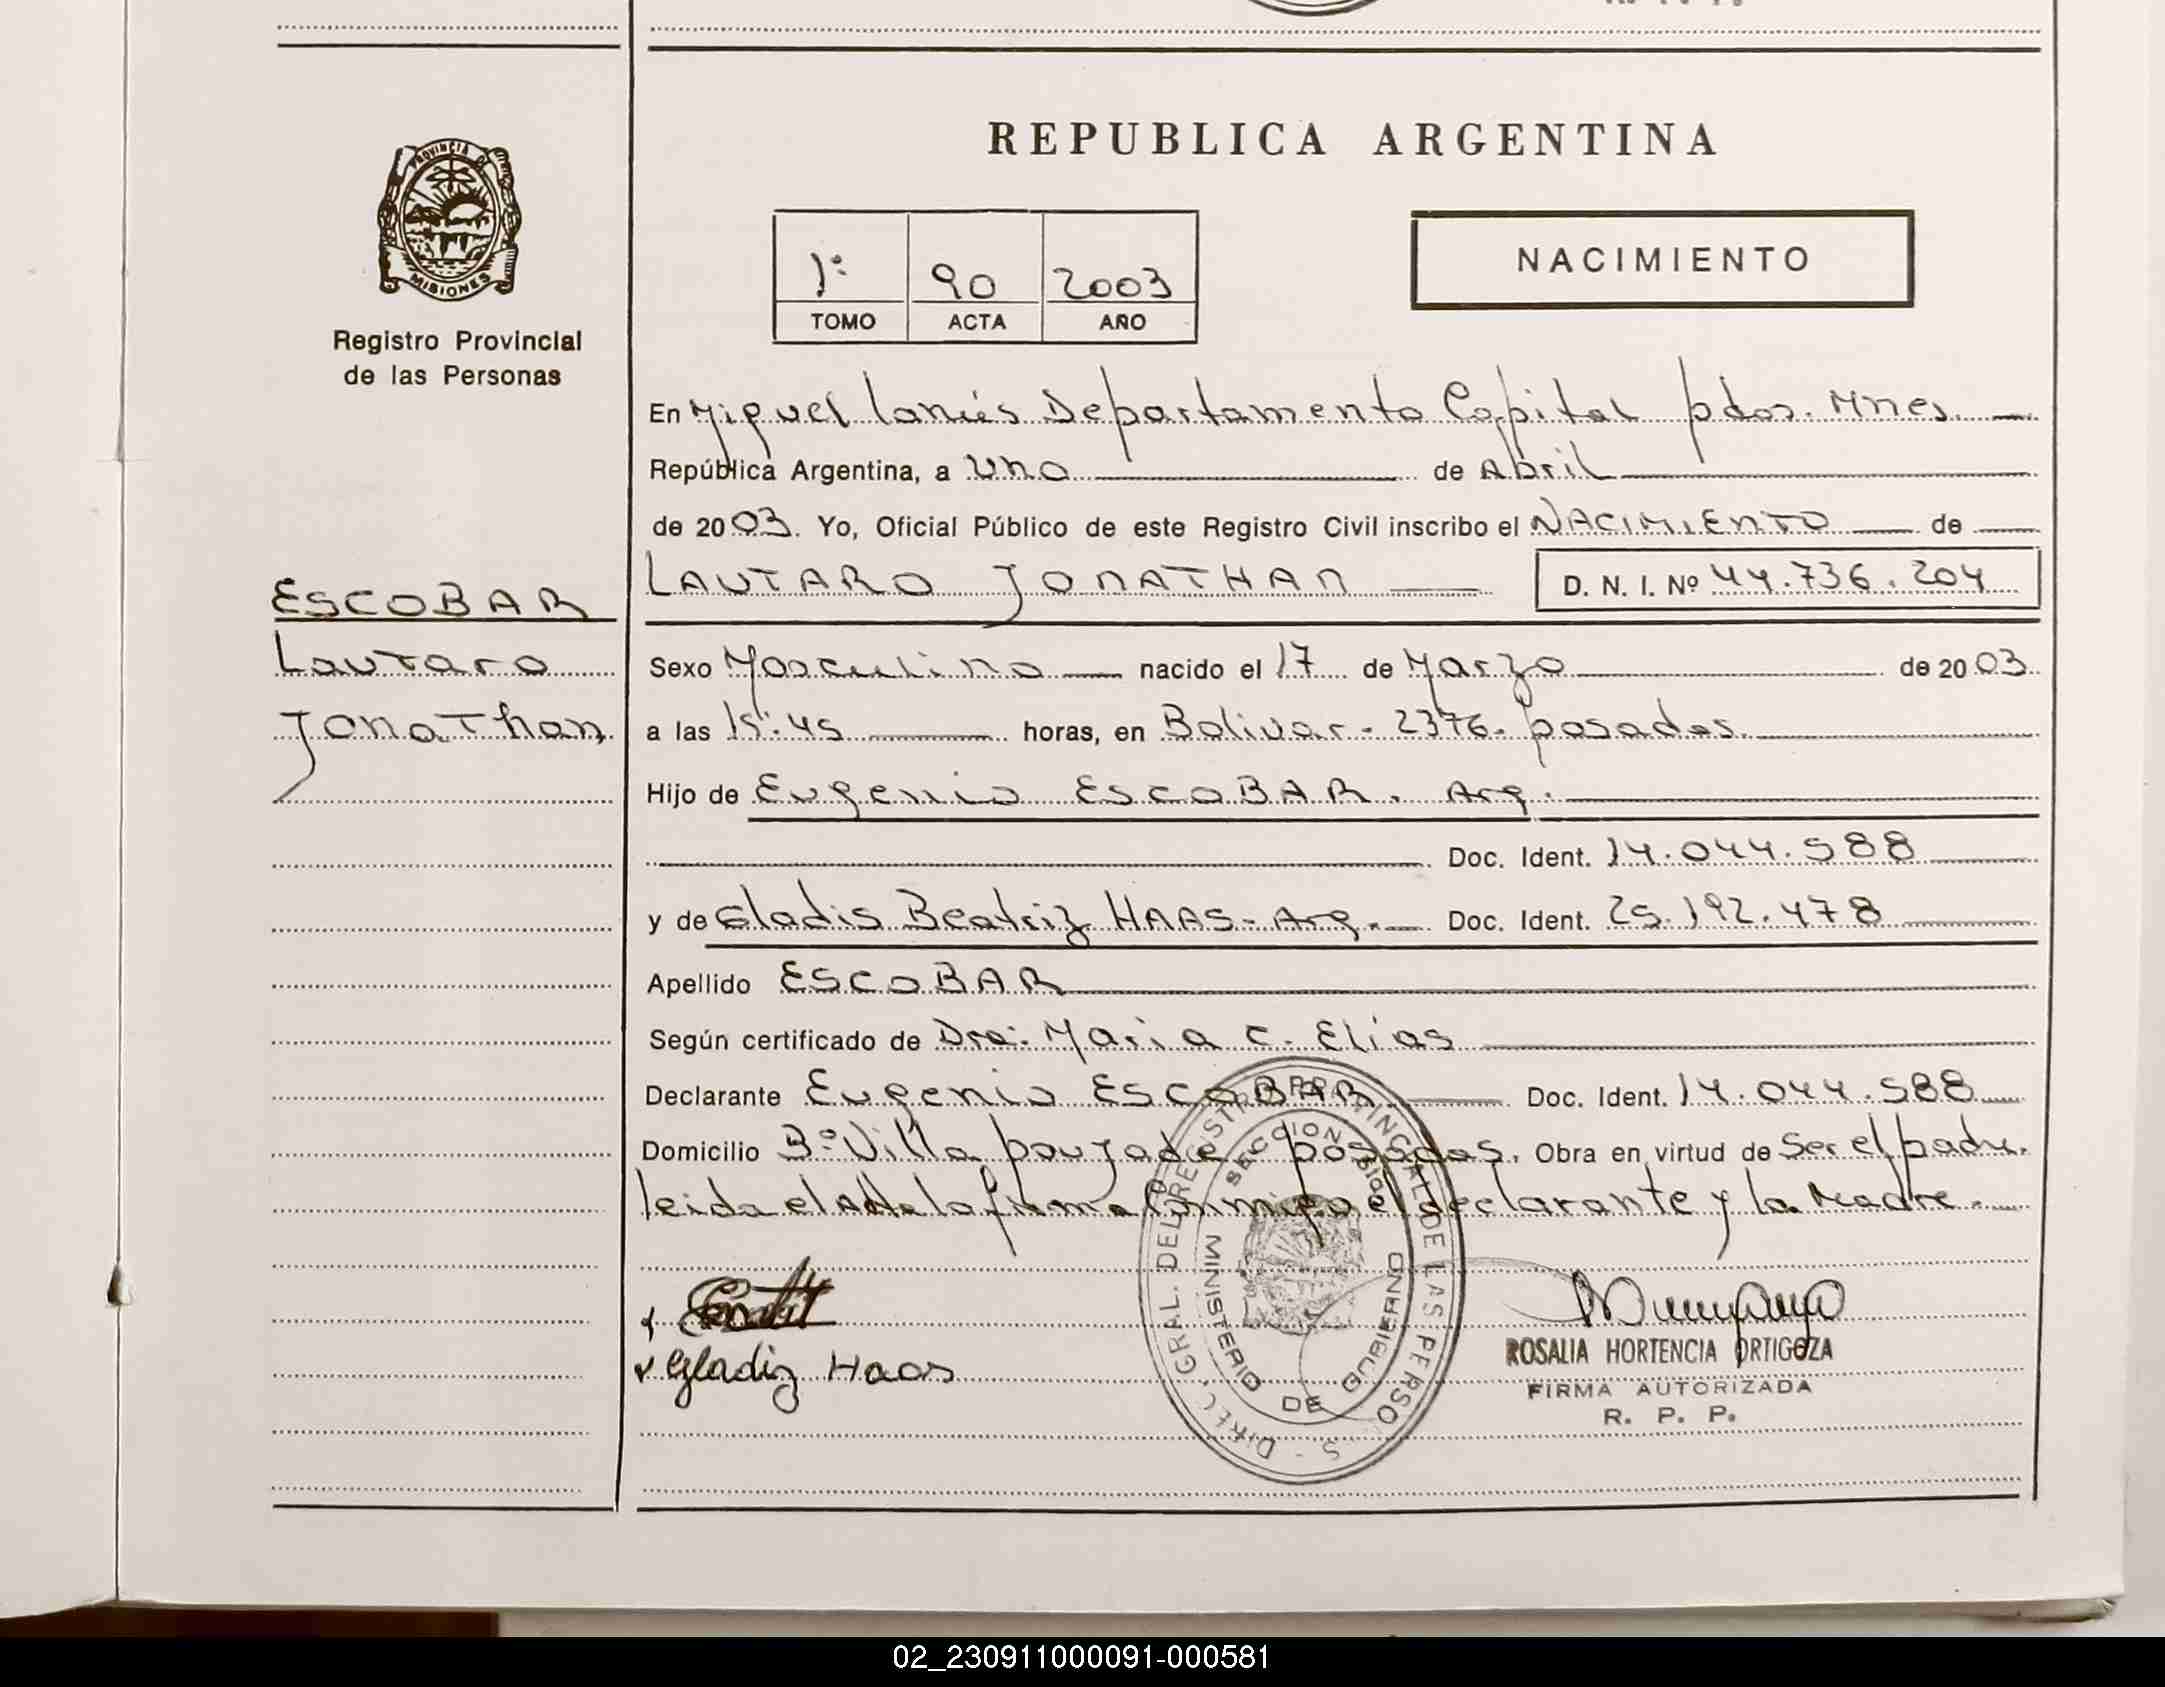 REPUBLICA ARGENTINA
PROVINCIA DE
MISIONES
Registro Provincial
de las Personas
1º 90 2003
TOMO ACTA AÑO
NACIMIENTO
En Miguel Lanús Departamento Capital pdas. Mnes.
República Argentina, a uno de Abril
de 2003. Yo, Oficial Público de este Registro Civil inscribo el NACIMIENTO de
ESCOBAR
Lautaro
Jonathan
LAUTARO JONATHAN D. N. I. Nº 44.736.204
Sexo Masculino nacido el 17 de Marzo de 2003
a las 15:45 horas, en Bolivar - 2376 - posadas.
Hijo de Eugenio ESCOBAR. Arg.
Doc. Ident. 14.044.588
y de Gladis Beatriz HAAS - Arg. - Doc. Ident. 25.192.478
Apellido ESCOBAR
Según certificado de Dra: Maria C. Elias
Declarante Eugenio ESCOBAR Doc. Ident. 14.044.588
Domicilio Bº Villa poujade - posadas. Obra en virtud de Ser el padre.
leida el Acta la firma conmigo el declarante y la Madre.
Gladiz Haas
DIREC. GRAL. DEL REGISTRO PROVINCIAL DE LAS PERSONAS
SECCION
MINISTERIO DE GOBIERNO
ROSALIA HORTENCIA ORTIGOZA
FIRMA AUTORIZADA
R. P. P.
02_230911000091-000581